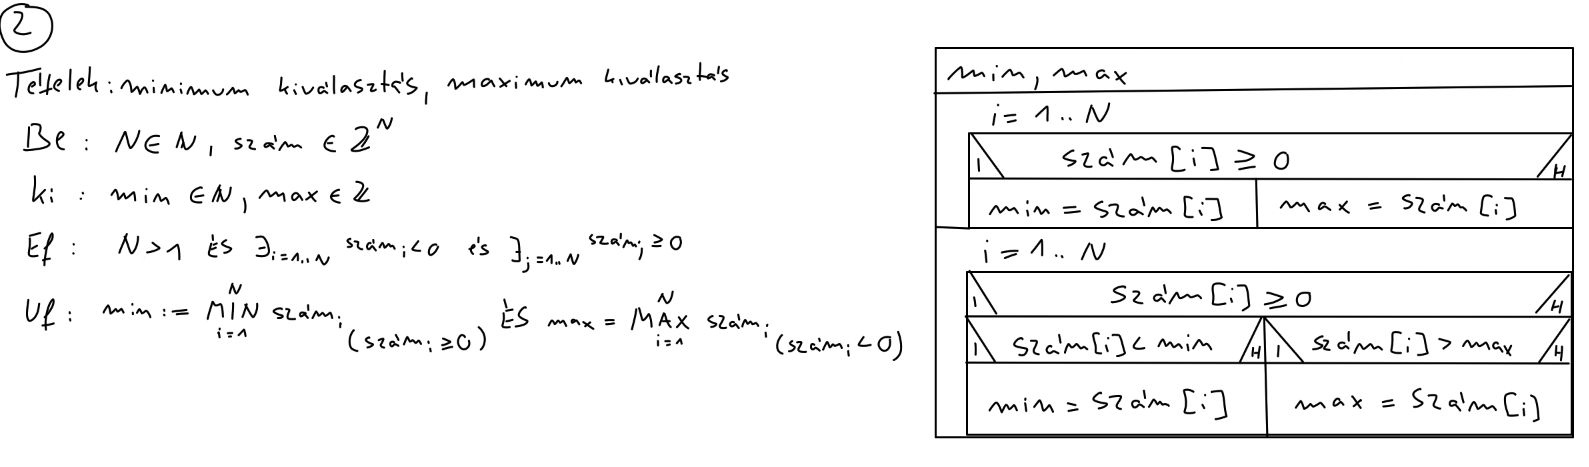 2
Tételek: minimum kiválasztás, maximum kiválasztás
Be: N∈ℕ, szám ∈ ℤ^N
ki: min ∈ℕ, max ∈ ℤ
Ef: N>1 ÉS ∃_{i=1..N} szám_i<0 és ∃_{j=1..N} szám_j≥0
Uf: min := MIN_{i=1}^{N} szám_i (szám_i≥0) ÉS max = MAX_{i=1}^{N} szám_i (szám_i<0)
min, max
i = 1..N
I szám[i] ≥ 0 H
min = szám[i] max = szám[i]
i = 1..N
I szám[i] ≥ 0 H
I szám[i] < min H I szám[i] > max H
min = szám[i] max = szám[i]